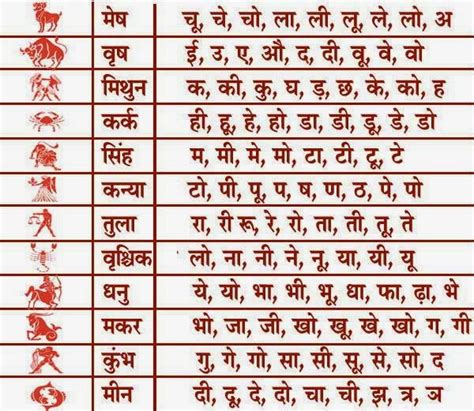 मेष चू, चे, चो, ला, ली, लू, ले, लो, अ
वृष ई, उ, ए, औ, द, दी, वू, वे, वो
मिथुन क, की, कु, घ, ड़, छ, के, को, ह
कर्क ही, हू, हे, हो, डा, डी, डू, डे, डो
सिंह म, मी, मे, मो, टा, टी, टू, टे
कन्या टो, पी, पू, प, ष, ण, ठ, पे, पो
तुला रा, री रू, रे, रो, ता, ती, तू, ते
वृश्चिक लो, ना, नी, ने, नू, या, यी, यू
धनु ये, यो, भा, भी, भू, धा, फा, ढ़ा, भे
मकर भो, जा, जी, खो, खू, खे, खो, ग, गी
कुंभ गु, गे, गो, सा, सी, सू, से, सो, द
मीन दी, दू, दे, दो, चा, ची, झ, त्र, ञ